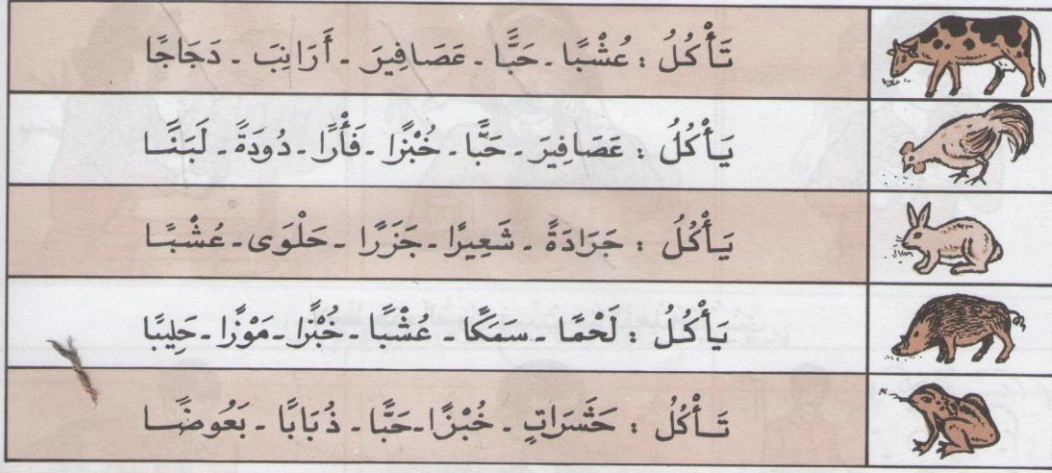 تَأْكُلُ : عُشْبًا - حَبًّا - عَصَافِيرَ - أَرَانِبَ - دَجَاجًا
يَأْكُلُ : عَصَافِيرَ - حَبًّا - خُبْزًا - فَأْرًا - دُودَةً - لَبَنًا
يَأْكُلُ : جَرَادَةً - شَعِيرًا - جَزَرًا - حَلْوَى - عُشْبًا
يَأْكُلُ : لَحْمًا - سَمَكًا - عُشْبًا - خُبْزًا - مَوْزًا - حَلِيبًا
تَأْكُلُ : حَشَرَاتٍ - خُبْزًا - حَبًّا - ذُبَابًا - بَعُوضًا